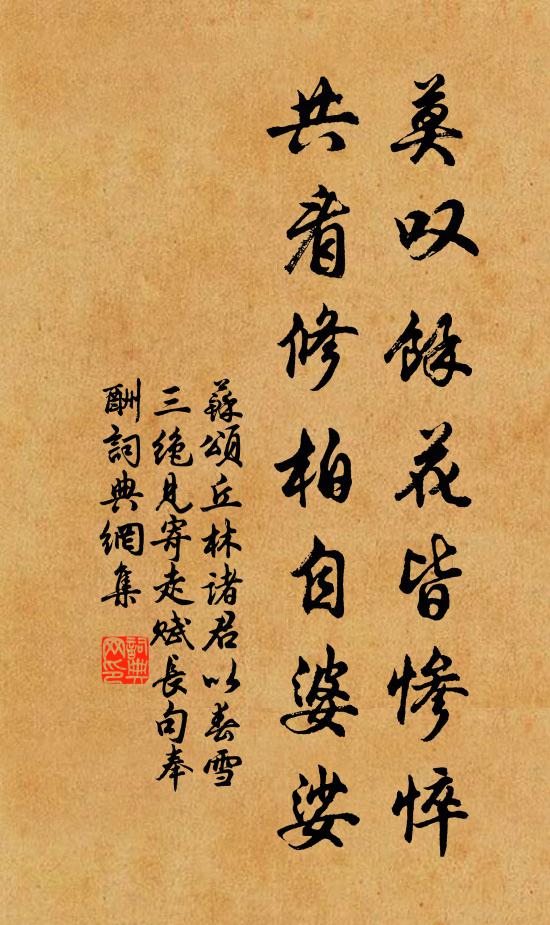 莫叹餘花皆惨悴
共看修柏自婆娑
蘇頌丘林诸君以春雪
三绝見寄走赋長句奉
酬詞典網集
詞典
网印